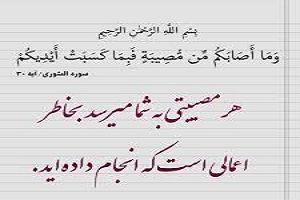 بِسْمِ اللَّهِ الرَّحْمَٰنِ الرَّحِيمِ
وَمَا أَصَابَكُم مِّن مُّصِيبَةٍ فَبِمَا كَسَبَتْ أَيْدِيكُمْ
سوره الشوری/ آیه ۳۰
هر مصیبتی به شما میرسد بخاطر
اعمالی است که انجام داده اید.